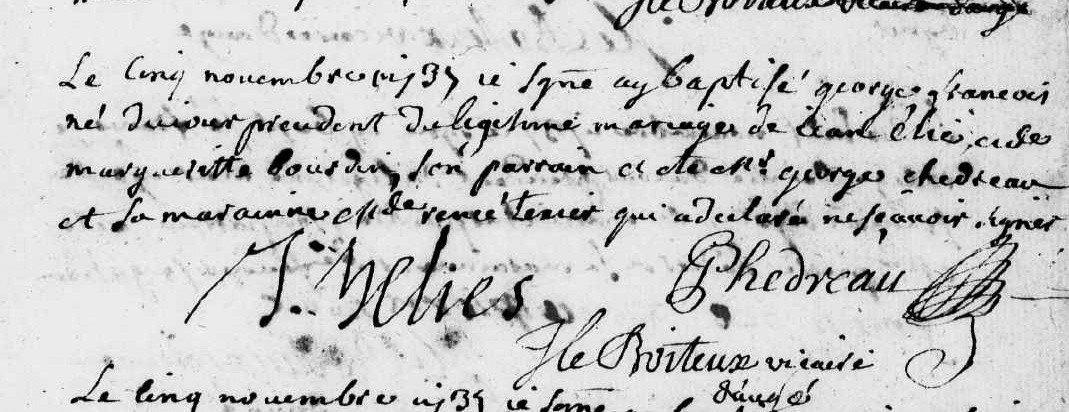 Le Boiteux vicaire daugé
Le cinq novembre 1737 ie sgné ay baptisé george francois
né du iour precedent du legitime mariage de iean Elie et de
margueritte bourdin, son parrain a ete Mr george chedreau
et sa maraine Mde renée texier qui a declaré ne sçavoir signer
J. Helies GChedreau
J le Boiteux vicaire
d'augé
Le cinq novembre 1737 ie sgné